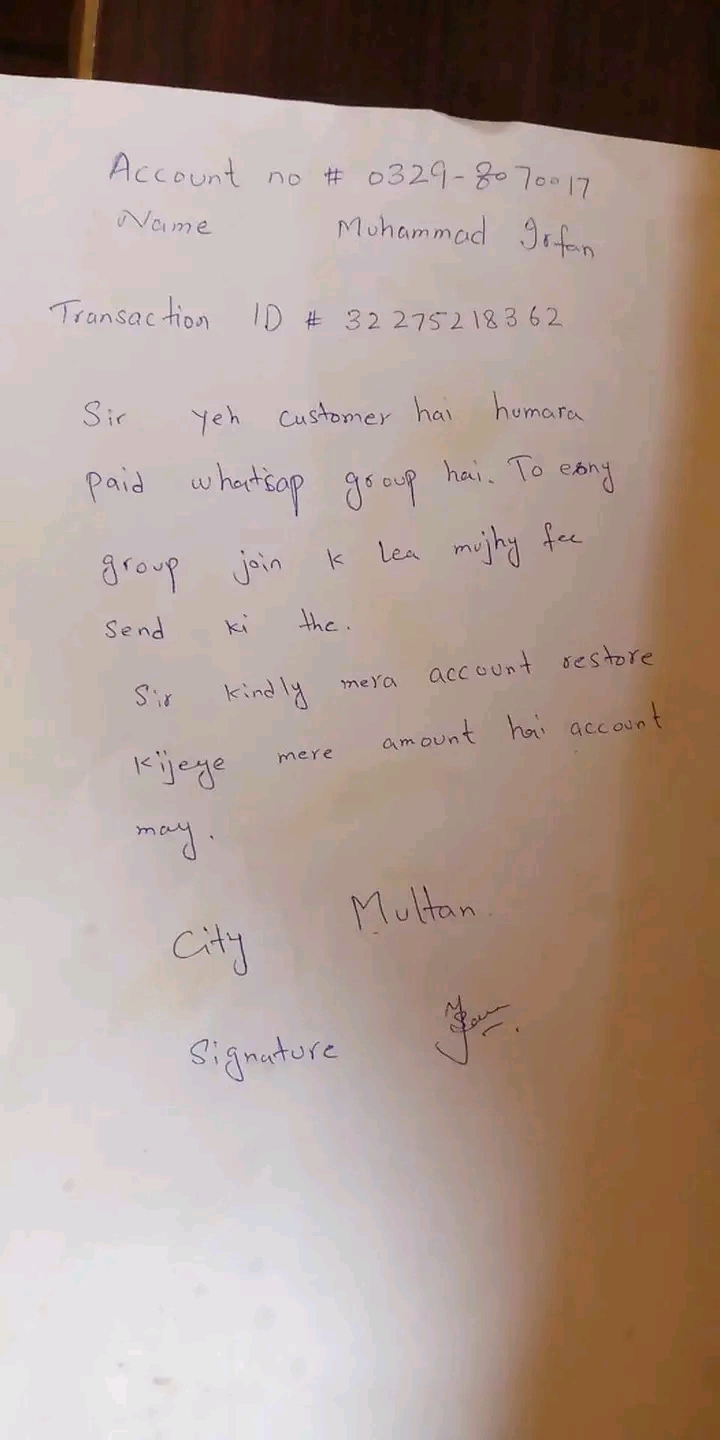 Account no # 0329-8070017
Name Muhammad Irfan
Transaction ID # 32275218362
Sir yeh customer hai humara
paid whatsap group hai. To esny
group join k lea mujhy fee
send ki the.
Sir kindly mera account restore
kijeye mere amount hai account
may.
City Multan
Signature